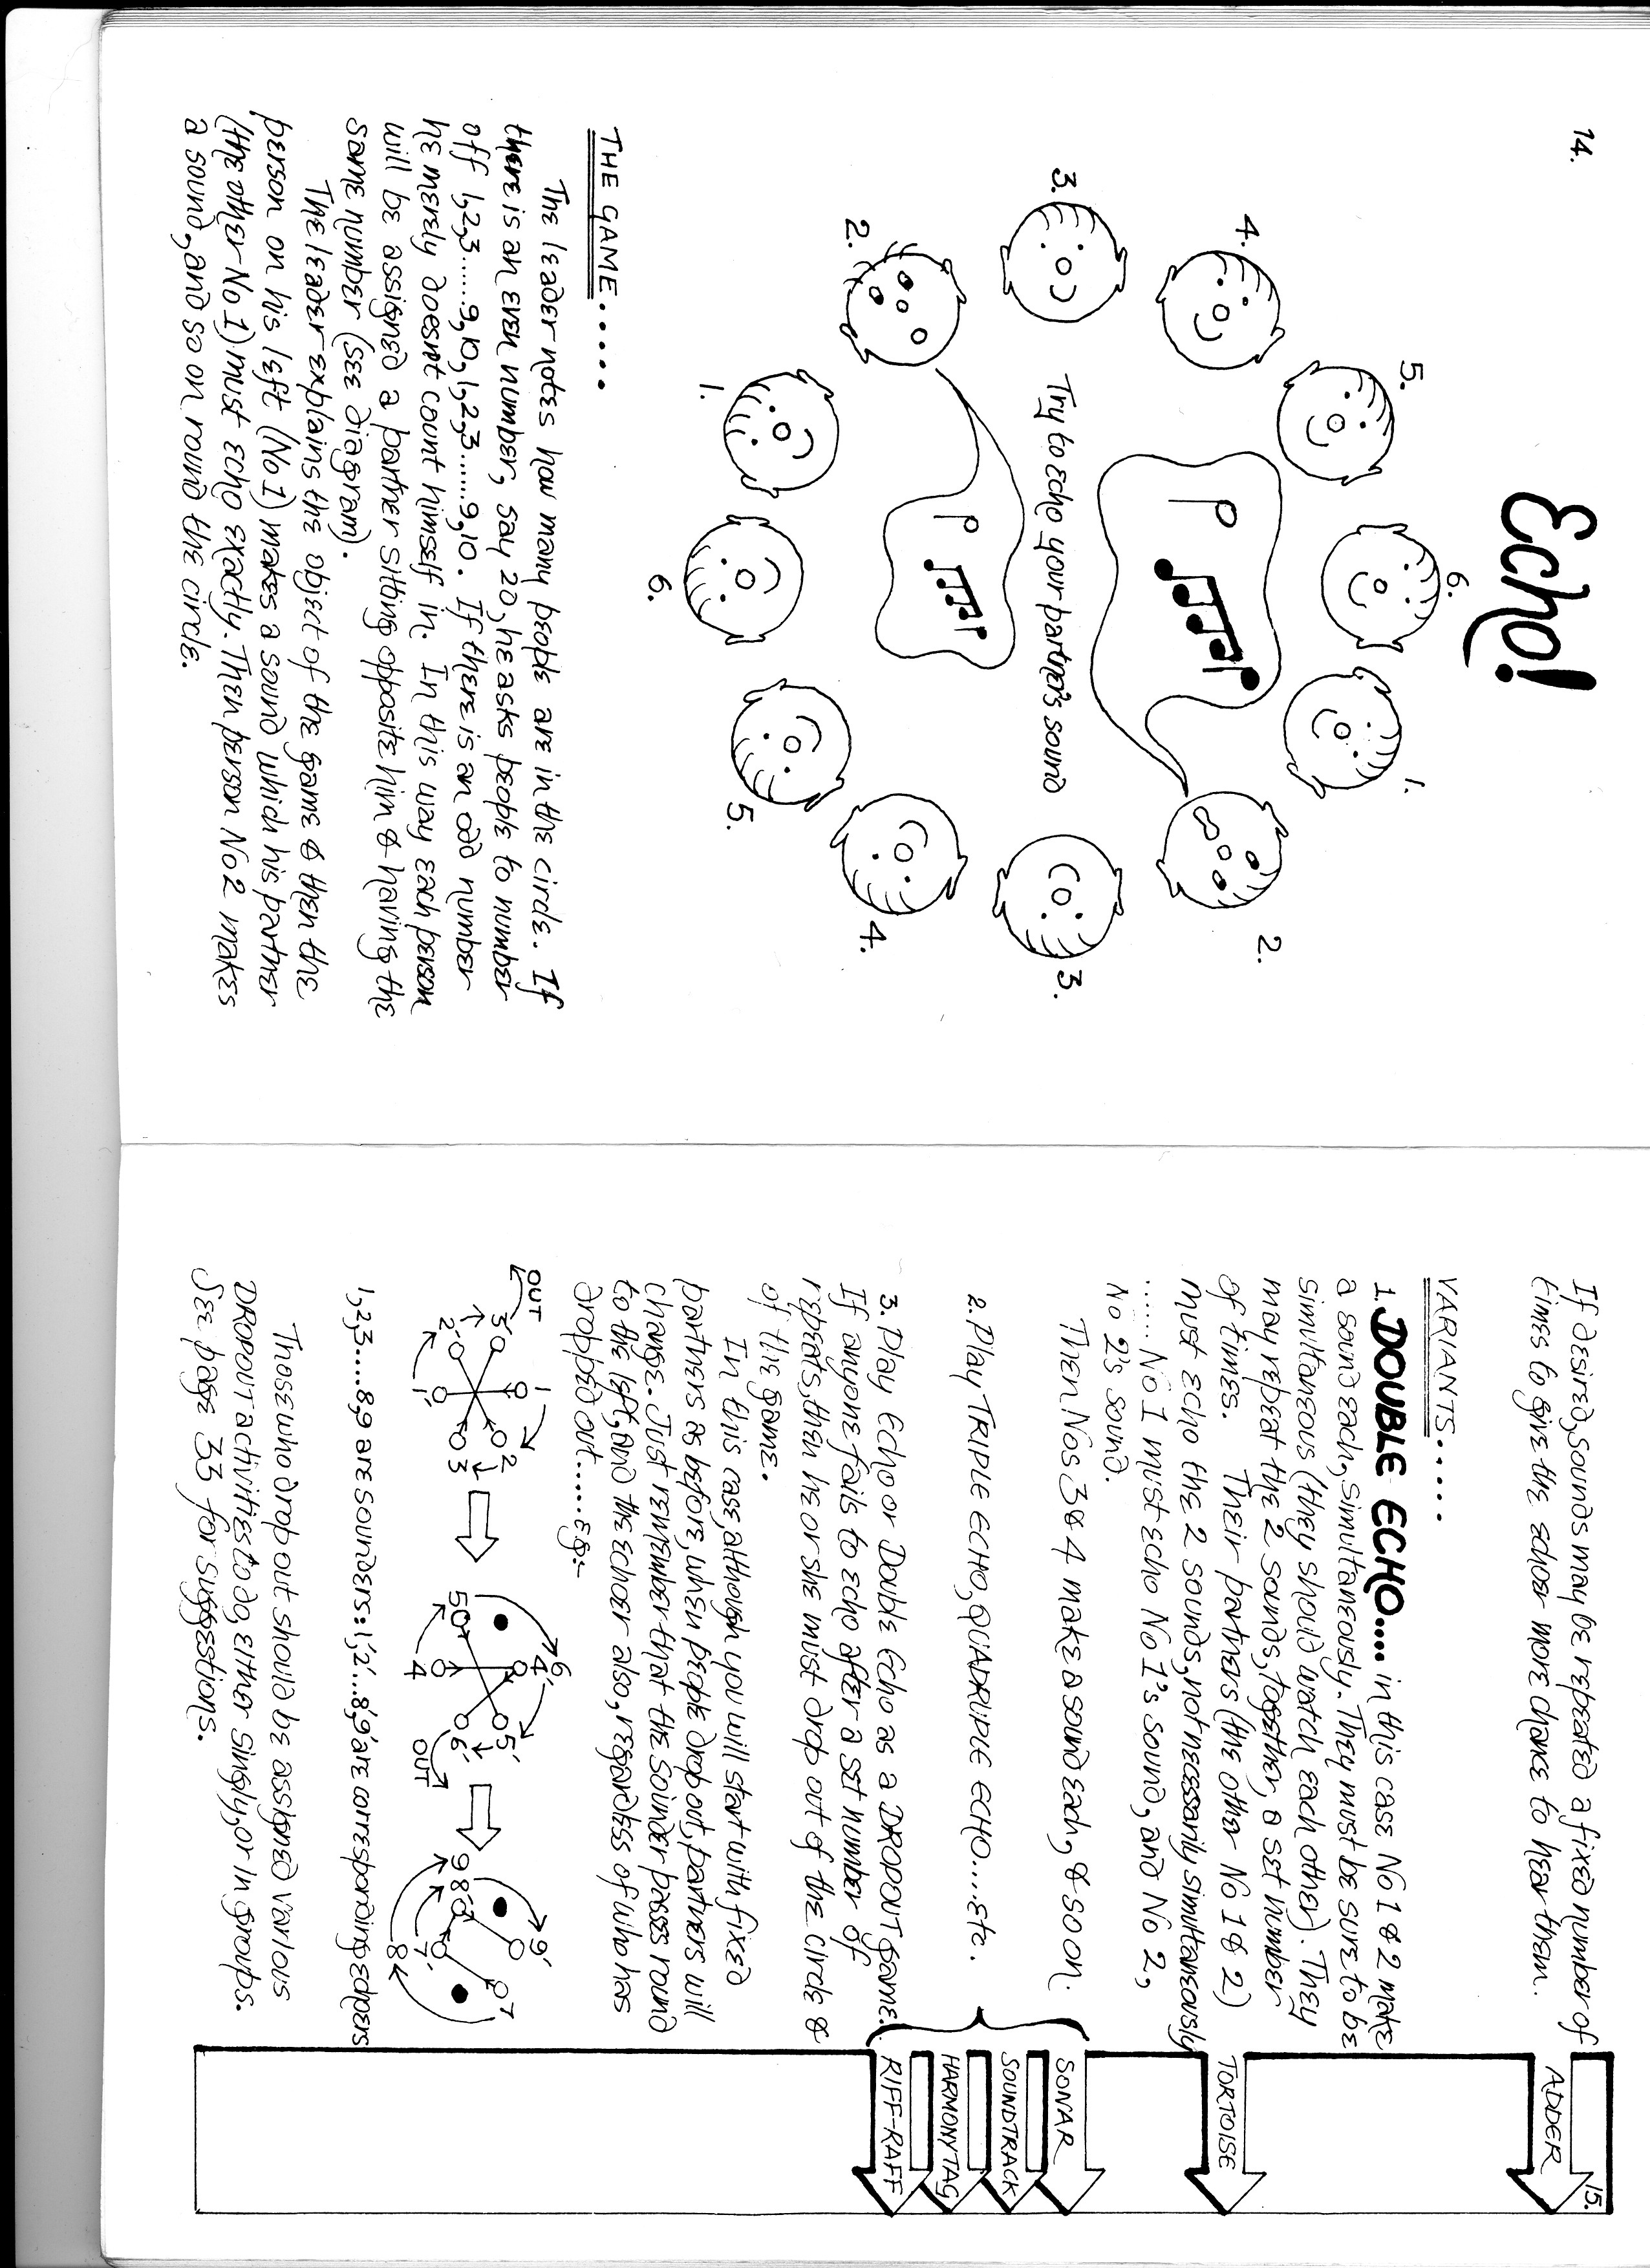 14.
Echo!
3.
4.
5.
6.
1.
2.
3.
4.
5.
6.
1.
2.
Try to echo your partner's sound
THE GAME.....
The leader notes how many people are in the circle. If
there is an even number, say 20, he asks people to number
off 1,2,3......9,10,1,2,3......9,10. If there is an odd number
he merely doesnt count himself in. In this way each person
will be assigned a partner sitting opposite him & having the
same number (see diagram).
The leader explains the object of the game & then the
person on his left (No 1) makes a sound which his partner
(the other No 1) must echo exactly. Then person No 2 makes
a sound, and so on round the circle.
15.
If desired, sounds may be repeated a fixed number of
times to give the echoer more chance to hear them.
VARIANTS.....
1. DOUBLE ECHO.... in this case No 1 & 2 make
a sound each, simultaneously. They must be sure to be
simultaneous (they should watch each other). They
may repeat the 2 sounds, together, a set number
of times. Their partners (the other No 1 & 2)
must echo the 2 sounds, not necessarily simultaneously
...... No 1 must echo No 1's sound, and No 2,
No 2's sound.
Then Nos 3 & 4 make a sound each, & so on.
2. Play TRIPLE ECHO, QUADRUPLE ECHO.....etc.
3. Play Echo or Double Echo as a DROPOUT game.
If anyone fails to echo after a set number of
repeats, then he or she must drop out of the circle &
of the game.
In this case, although you will start with fixed
partners as before, when people drop out, partners will
change. Just remember that the sounder passes round
to the left, and the echoer also, regardless of who has
dropped out......eg:-
OUT
3'
2'
1'
1
2
3
5
4
6'
4'
5'
6
OUT
9
8'
7'
8
9'
7
1,2,3....8,9 are sounders: 1',2'...8',9' are corresponding echoers
Those who drop out should be assigned various
DROPOUT activities to do, either singly, or in groups.
See page 33 for suggestions.
ADDER
TORTOISE
SONAR
SOUNDTRACK
HARMONY TAG
RIFF-RAFF